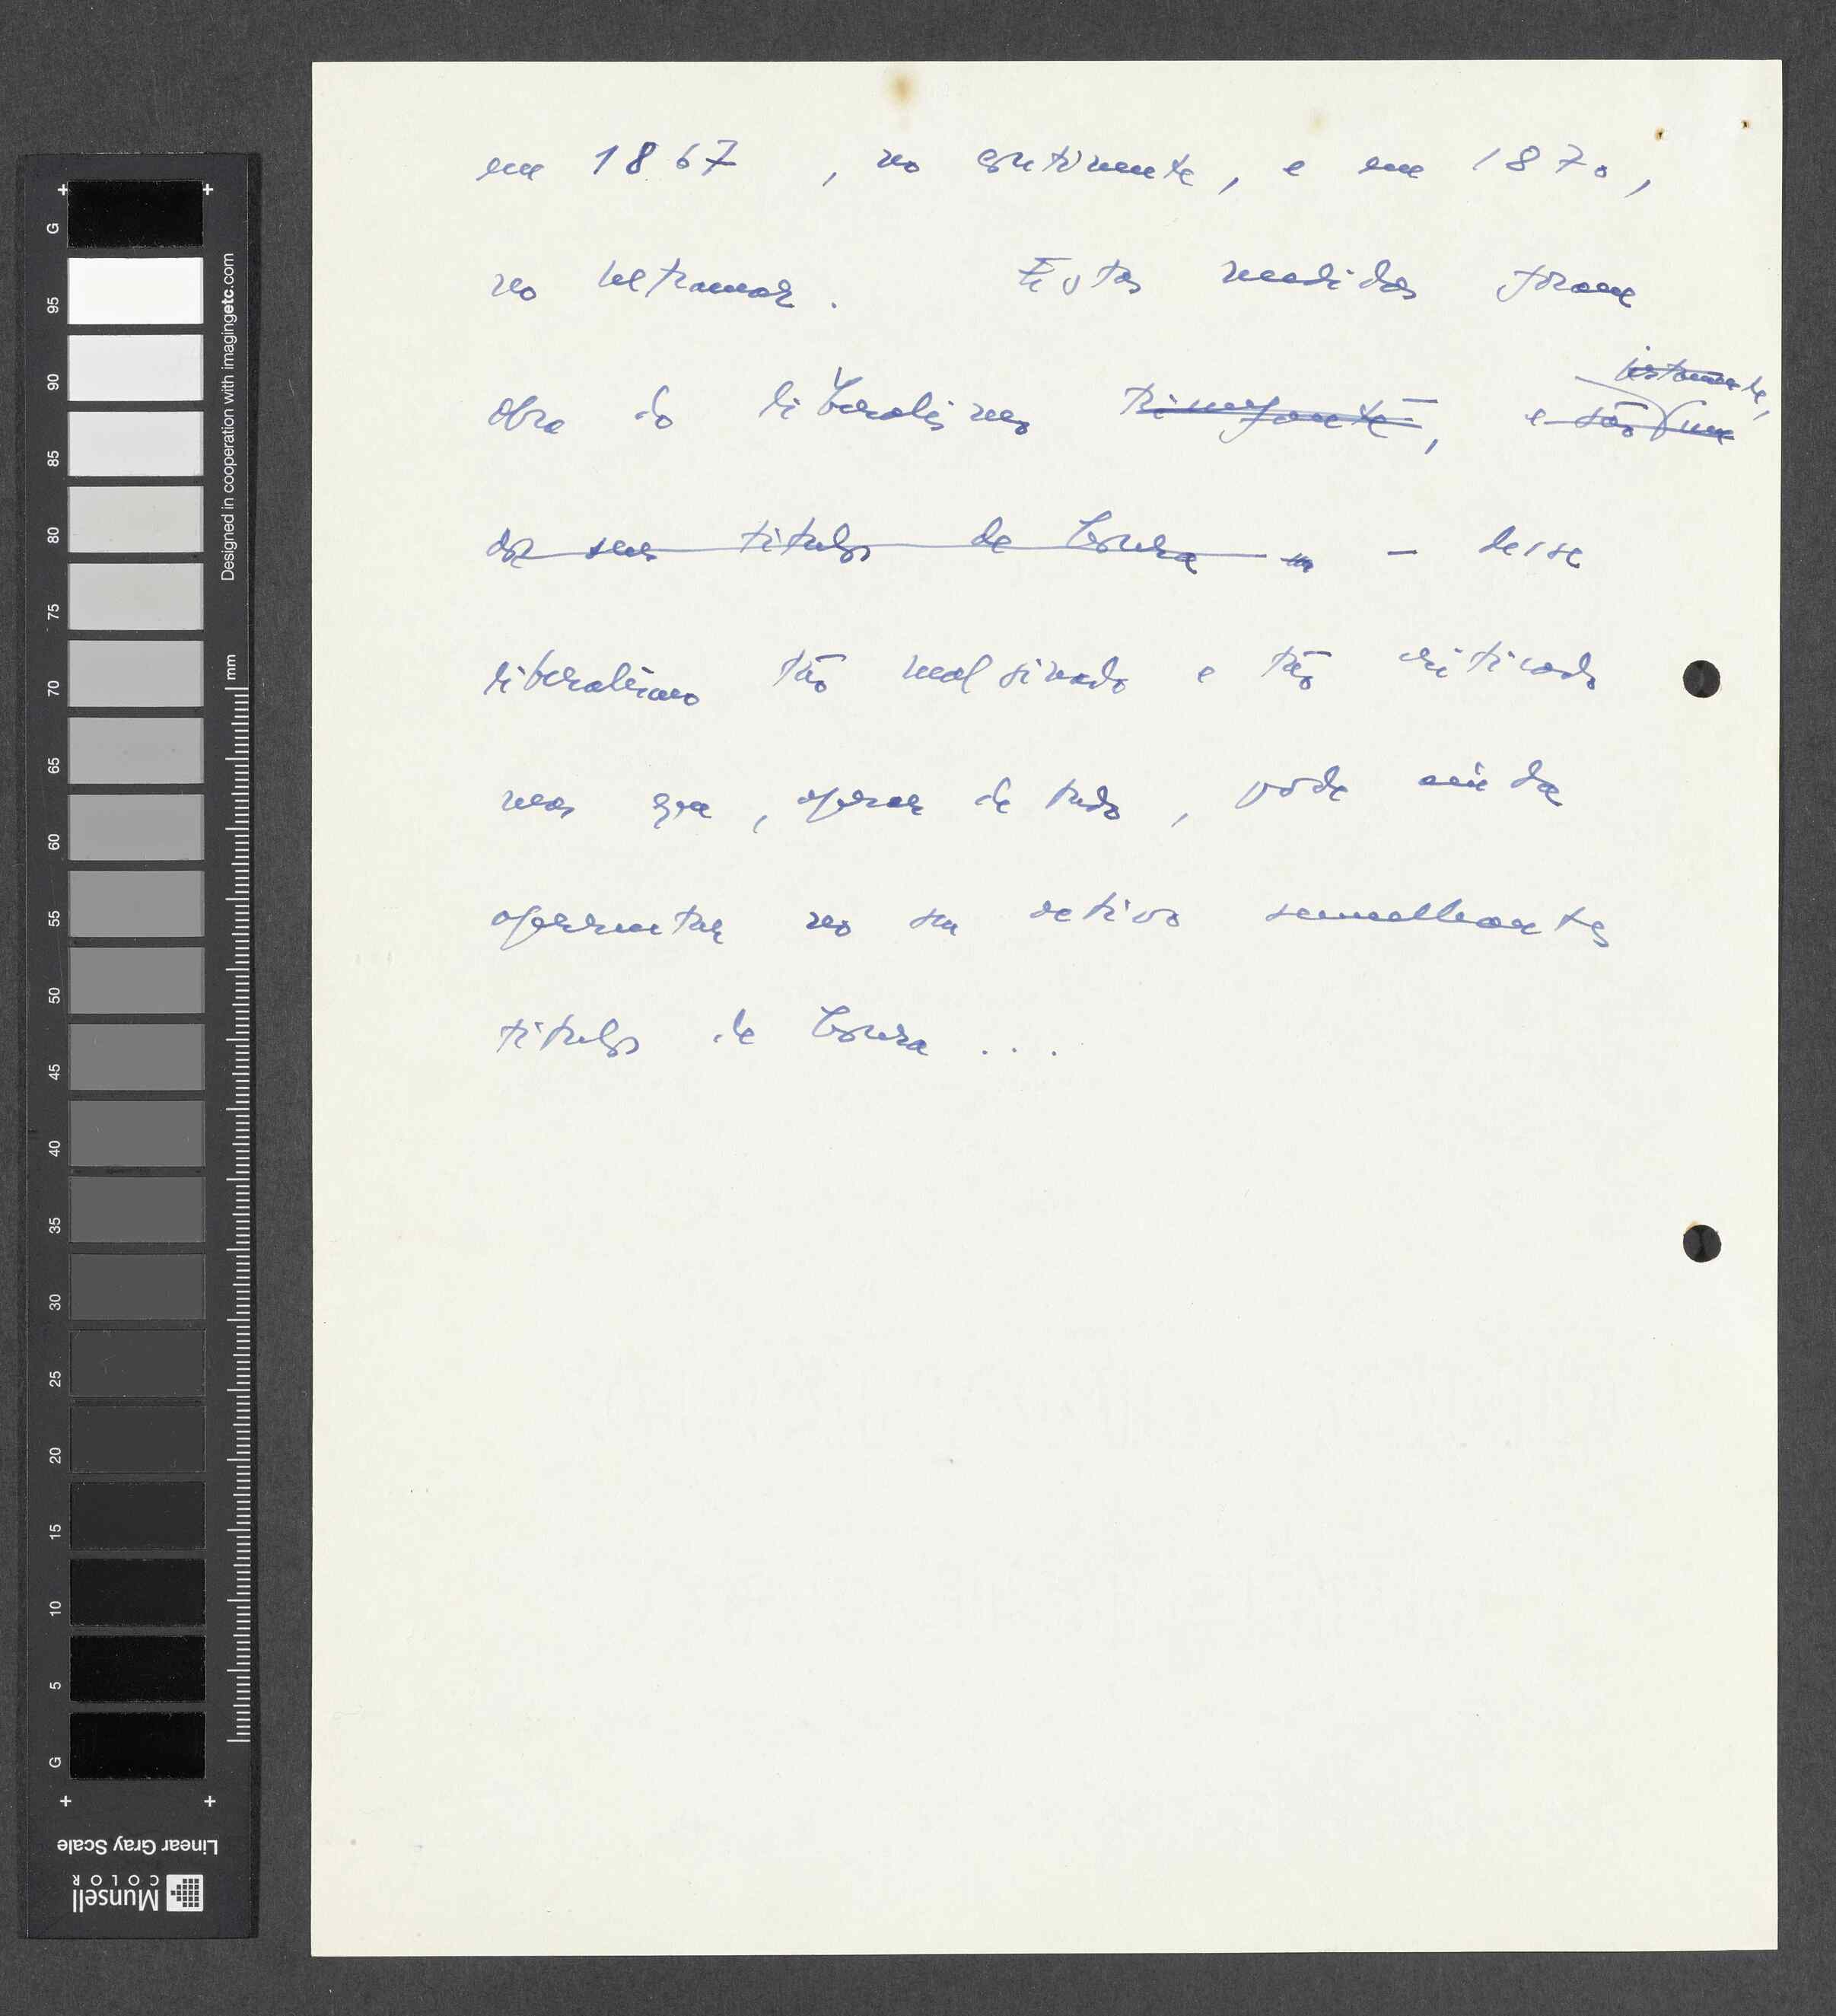 em 1867 , no continente, e em 1870,
no ultramar. Estas medidas foram
obra do liberalismo triunfante, e são justamente, um
dos seus titulos de honra – desse
liberalismo tão malsinado e tão criticado
mas que, apesar de tudo, pode ainda
apresentar no seu activo semelhantes
titulos de honra ...
Designed in cooperation with imagingetc.com
mm
G
95
90
85
80
75
70
65
60
55
50
45
40
35
30
25
20
15
10
5
G
Linear Gray Scale
Munsell
COLOR